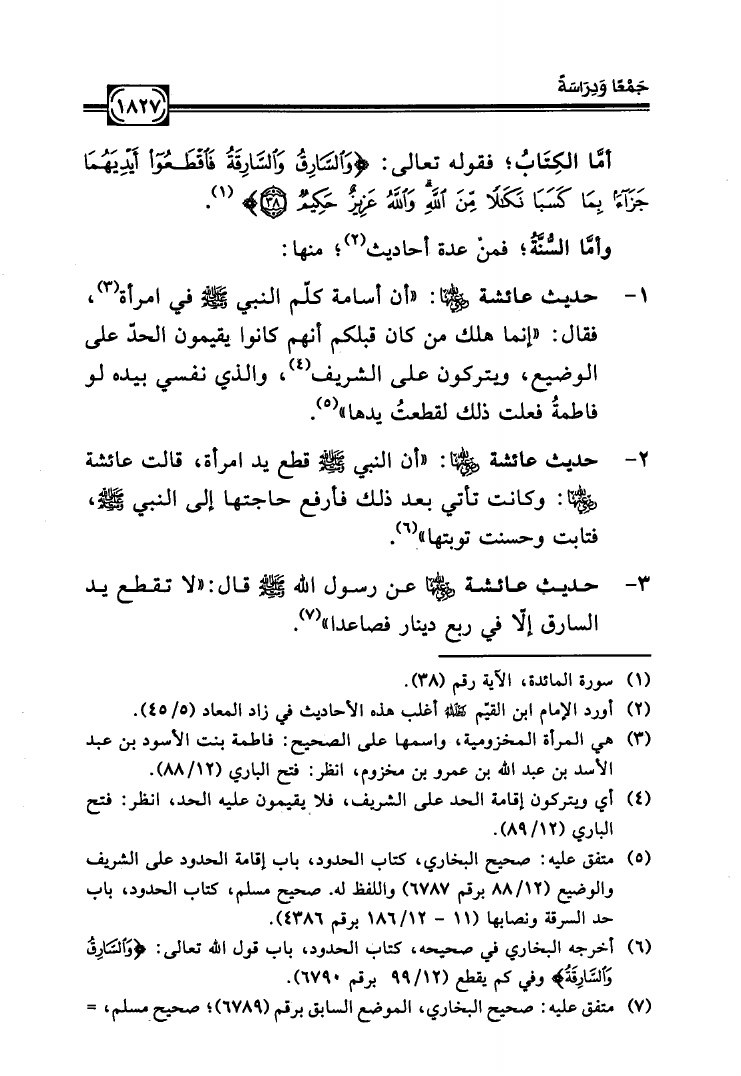 جَمْعًا وَدِرَاسَةً
١٨٢٧
أمَّا الكِتَابُ؛ فقوله تعالى: ﴿وَٱلسَّارِقُ وَٱلسَّارِقَةُ فَٱقْطَعُوٓا۟ أَيْدِيَهُمَا
جَزَآءًۢ بِمَا كَسَبَا نَكَٰلًا مِّنَ ٱللَّهِۗ وَٱللَّهُ عَزِيزٌ حَكِيمٌ ۝٣٨﴾ (١).
وأمَّا السُّنَّةُ؛ فمنْ عدة أحاديث(٢)؛ منها:
١- حديث عائشة رضي الله عنها: «أن أسامة كلّم النبي ﷺ في امرأة(٣)،
فقال: «إنما هلك من كان قبلكم أنهم كانوا يقيمون الحدّ على
الوضيع، ويتركون على الشريف(٤)، والذي نفسي بيده لو
فاطمةُ فعلت ذلك لقطعتُ يدها»(٥).
٢- حديث عائشة رضي الله عنها: «أن النبي ﷺ قطع يد امرأة، قالت عائشة
رضي الله عنها: وكانت تأتي بعد ذلك فأرفع حاجتها إلى النبي ﷺ،
فتابت وحسنت توبتها»(٦).
٣- حديث عائشة رضي الله عنها عن رسول الله ﷺ قال: «لا تقطع يد
السارق إلّا في ربع دينار فصاعدا»(٧).
(١) سورة المائدة، الآية رقم (٣٨).
(٢) أورد الإمام ابن القيّم رحمه الله أغلب هذه الأحاديث في زاد المعاد (٥/ ٤٥).
(٣) هي المرأة المخزومية، واسمها على الصحيح: فاطمة بنت الأسود بن عبد
الأسد بن عبد الله بن عمرو بن مخزوم، انظر: فتح الباري (١٢/ ٨٨).
(٤) أي ويتركون إقامة الحد على الشريف، فلا يقيمون عليه الحد، انظر: فتح
الباري (١٢/ ٨٩).
(٥) متفق عليه: صحيح البخاري، كتاب الحدود، باب إقامة الحدود على الشريف
والوضيع (١٢/ ٨٨ برقم ٦٧٨٧) واللفظ له. صحيح مسلم، كتاب الحدود، باب
حد السرقة ونصابها (١١ - ١٢/ ١٨٦ برقم ٤٣٨٦).
(٦) أخرجه البخاري في صحيحه، كتاب الحدود، باب قول الله تعالى: ﴿وَٱلسَّارِقُ
وَٱلسَّارِقَةُ﴾ وفي كم يقطع (١٢/ ٩٩ برقم ٦٧٩٠).
(٧) متفق عليه: صحيح البخاري، الموضع السابق برقم (٦٧٨٩)؛ صحيح مسلم، =